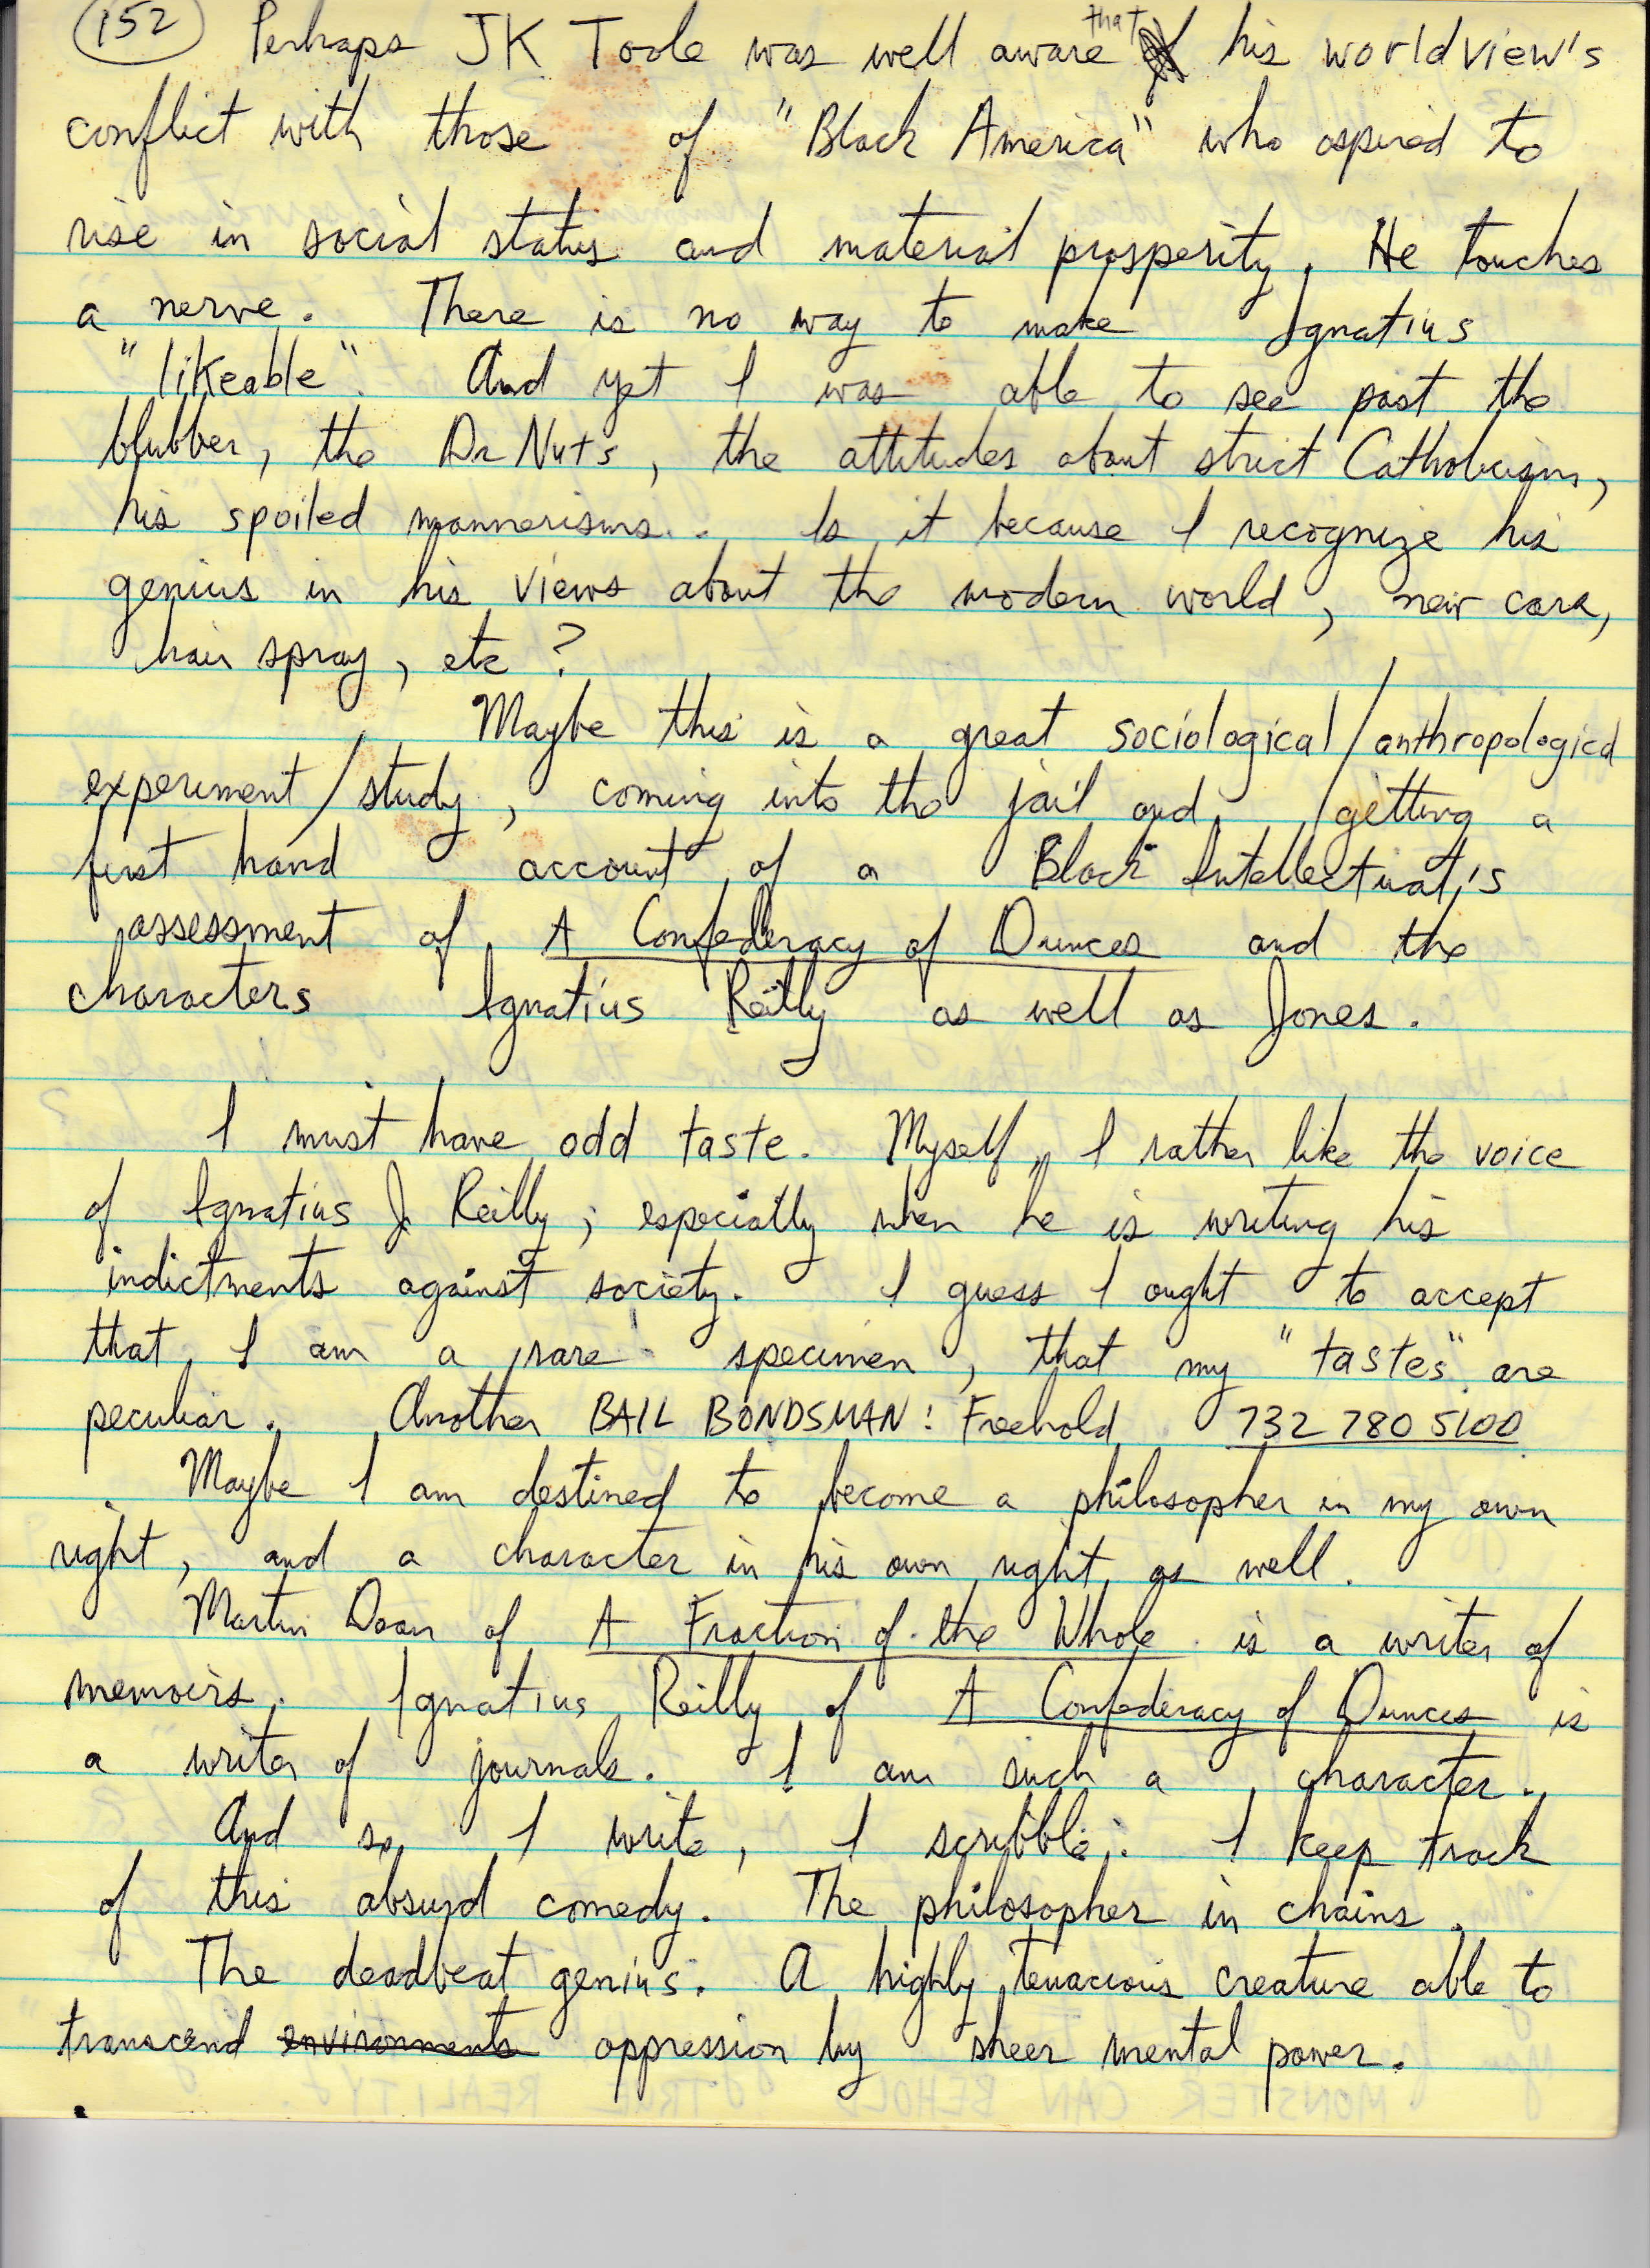 152 Perhaps JK Toole was well aware that his worldview's
conflict with those of "Black America" who aspired to
rise in social status and material prosperity. He touches
a nerve. There is no way to make Ignatius
"likeable". And yet I was able to see past the
blubber, the Dr Nuts, the attitudes about strict Catholicism,
his spoiled mannerisms.. Is it because I recognize his
genius in his views about the modern world, new cars,
hair spray, etc?
Maybe this is a great sociological/anthropological
experiment/study, coming into the jail and getting a
first hand account of a Black Intellectual's
assessment of A Confederacy of Dunces and the
characters Ignatius Reilly as well as Jones.
I must have odd taste. Myself, I rather like the voice
of Ignatius J Reilly; especially when he is writing his
indictments against society. I guess I ought to accept
that I am a rare specimen, that my "tastes" are
peculiar. Another BAIL BONDSMAN: Freehold 732 780 5100
Maybe I am destined to become a philosopher in my own
right, and a character in his own right as well.
Martin Dean of A Fraction of the Whole is a writer of
memoirs. Ignatius Reilly of A Confederacy of Dunces is
a writer of journals. I am such a character.
And so, I write, I scribble. I keep track
of this absurd comedy. The philosopher in chains.
The deadbeat genius. A highly tenacious creature able to
transcend environments oppression by sheer mental power.